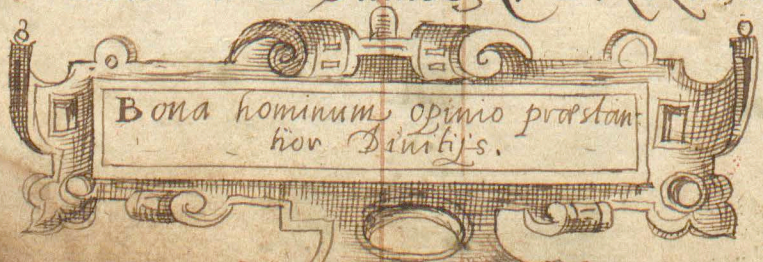 Bona hominum opinio præstan-
tior Divitijs.